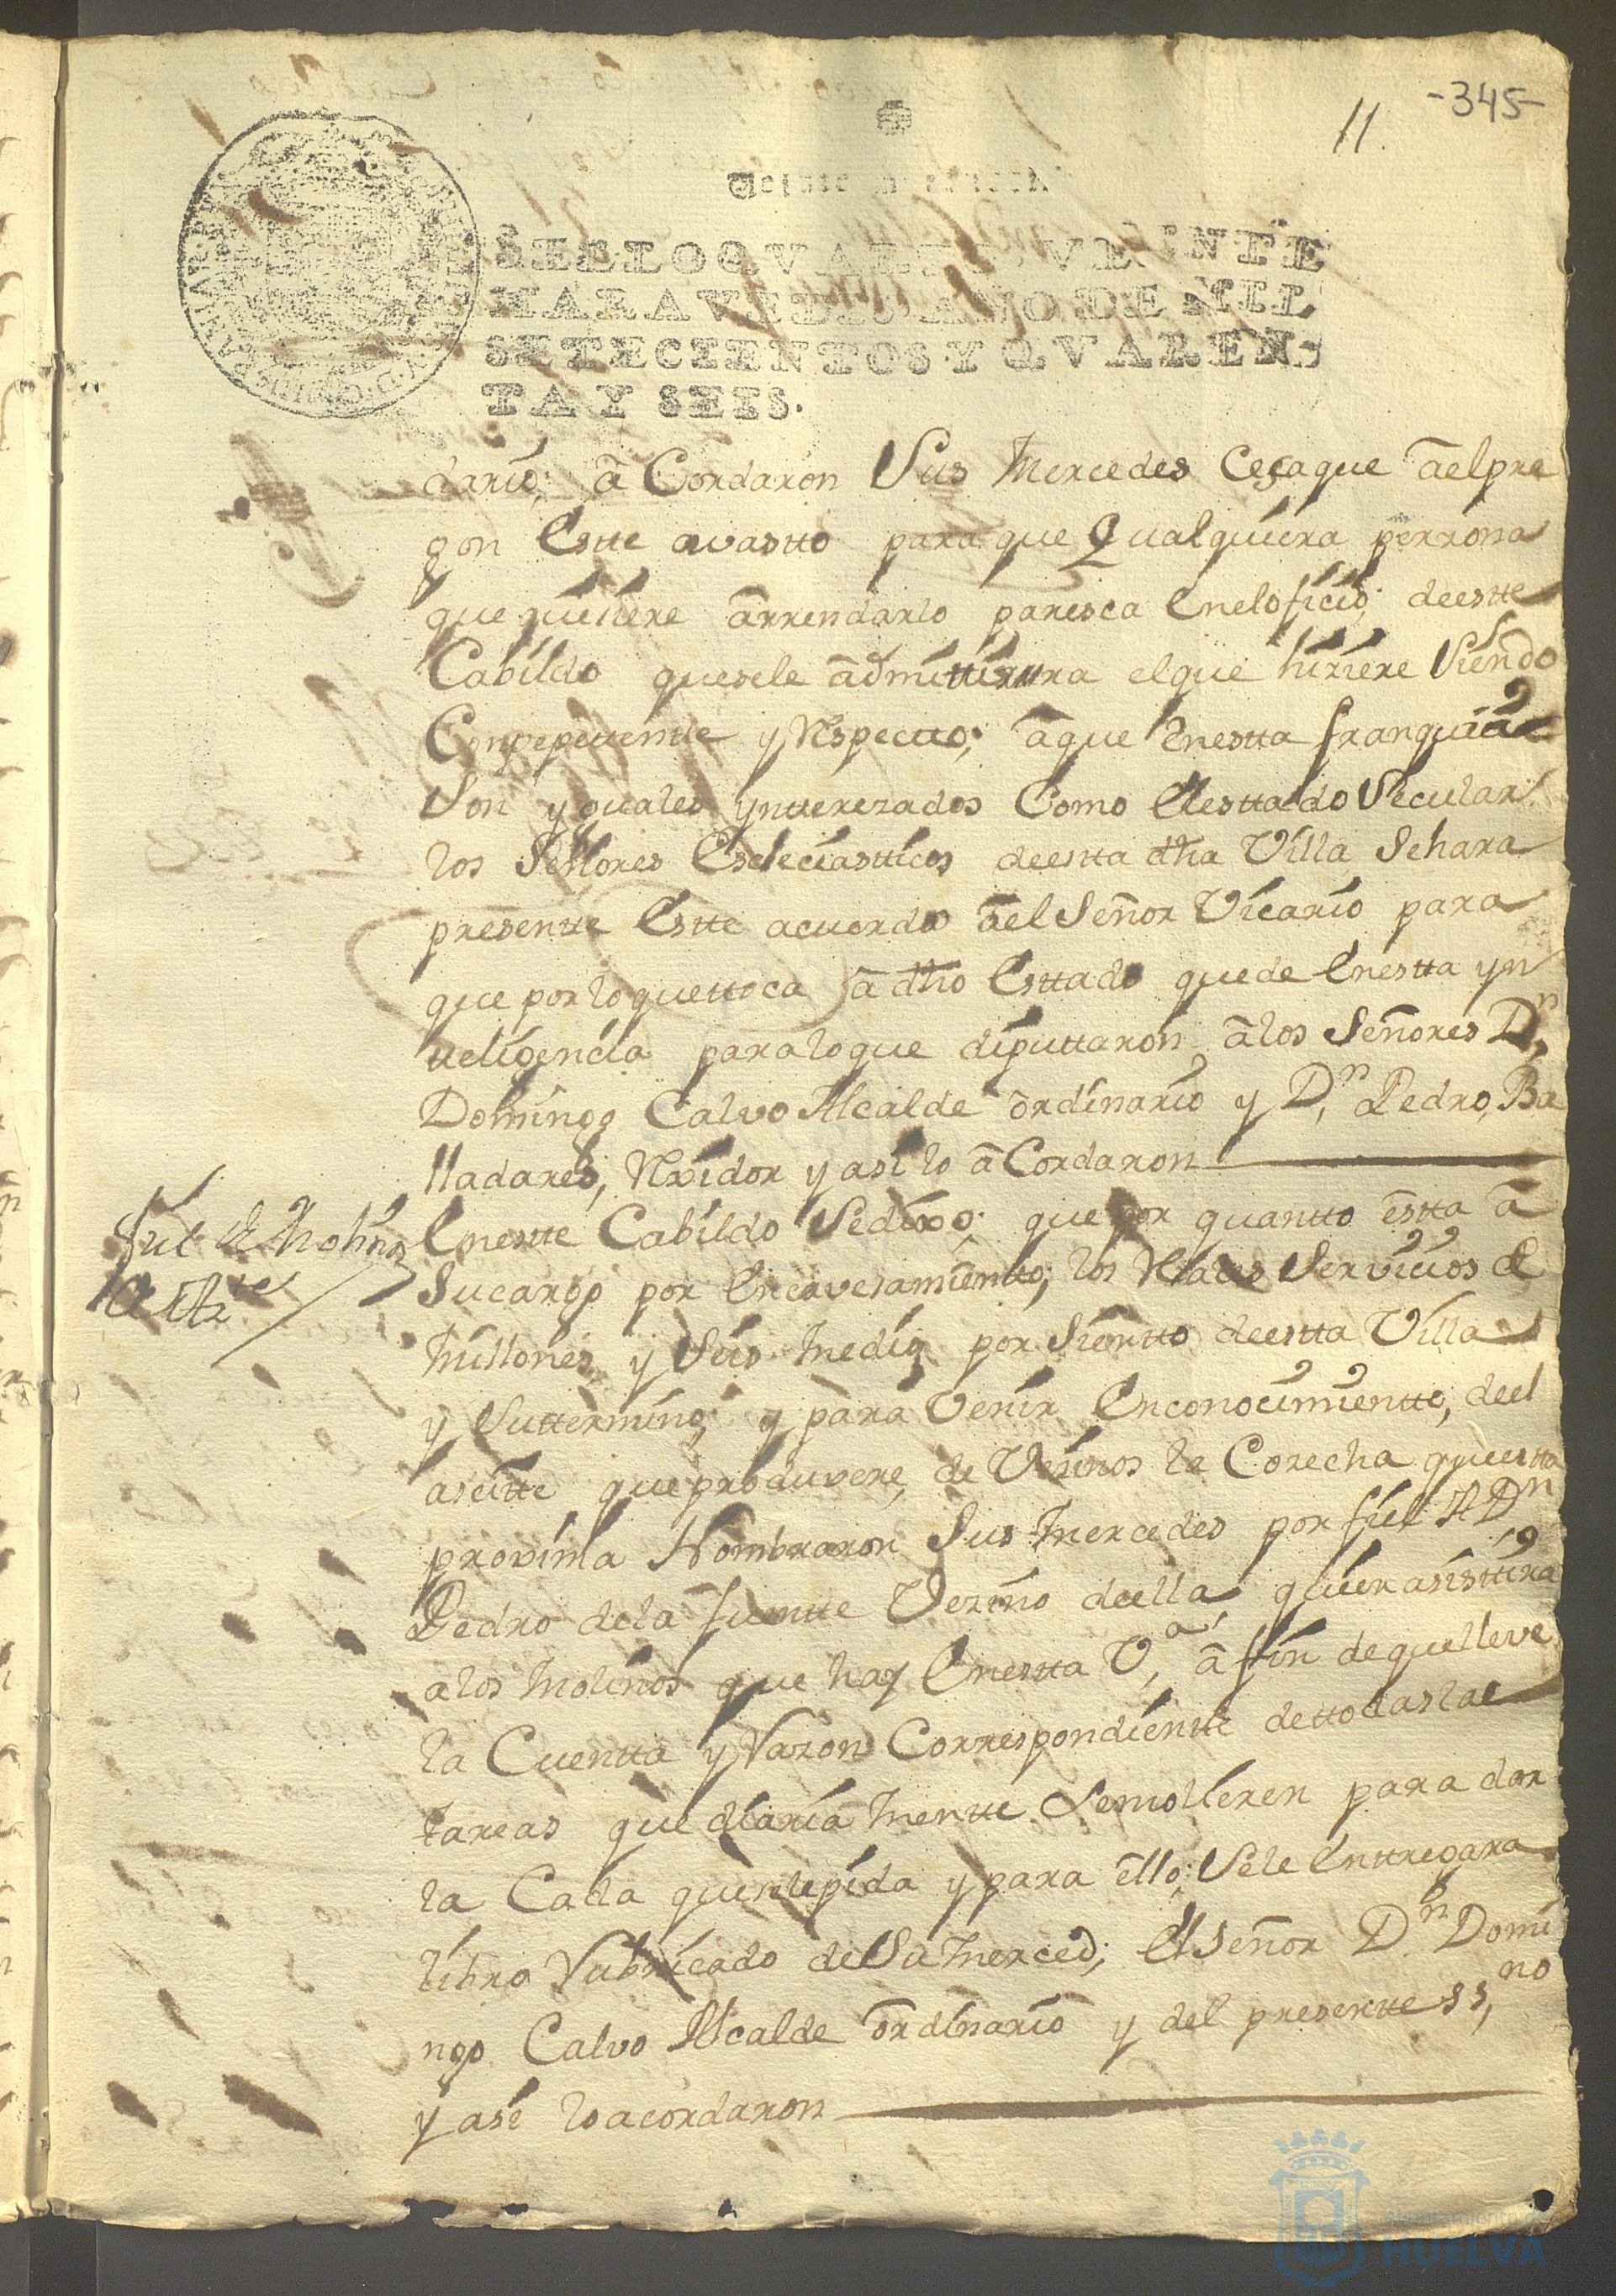 -345-
11.
Veinte maravedis.
SELLO QVARTO, VEINTE
MARAVEDIS, AÑO DE MIL
SETECIENTOS Y QVAREN-
TA Y SEIS.
dario; â Cordaron Sus Mercedes Ce saque âel pre
gon Estte avastto para que Qualquiera perzona
que quiciere ârrendarlo paresca Eneloficio; deestte
Cabildo quesele âdmittira el que hiziere Siendo
y Respectto; âque Enestta franquicia
Son yguales yntterezados Como Elesttado Secular
los Señores Escleciastticos deestta dha Villa Sehara
presentte Estte acuerdo âel Señor Vicario para
que por lo quettoca â dho Esttado quede Enestta yn
tteligencia paraloque diputtaron âlos Señores Dn,
Domingo Calvo Alcalde ôrdinario y Dn, Pedro, Ba
lladares, Rexidor y asi lo â Cordaron
fiel de Molinos
Aseite
Enestte Cabildo Sedixo; que por quantto êstta â
Sucargo por Encavesamientto; los Rales Servicios de
Millones y Seis Medio por Sientto deestta Villa
y Suttermino; y para Venir Enconocimientto, deel
aseitte que produxere, de Vesinos la Cosecha questta
proxima Nombraron Sus Mercedes por fiel A Dn
Pedro dela fuentte Vezino deella, quien asisttira
alos Molinos que hay Enestta Va, â fin dequelleve
la Cuentta y Razon Correspondientte dettodaslas
tareas que diaria Mentte Semolieren para dar
la Cala que se le pida y para êllo; Sele Enttregara
libro Rubricado deSu Merced; El Señor Dn Domi
ngo Calvo Alcalde ôrdinario y del presentte ss,no
y asi loacordaron
Ayuntamiento de
HUELVA